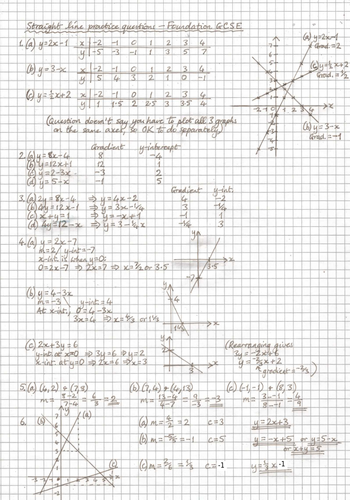 Straight line practice questions - Foundation GCSE
1. (a) y=2x-1 x -2 -1 0 1 2 3 4
y -5 -3 -1 1 3 5 7
(b) y=3-x x -2 -1 0 1 2 3 4
y 5 4 3 2 1 0 -1
(c) y=½x+2 x -2 -1 0 1 2 3 4
y 1 1.5 2 2.5 3 3.5 4
(a) y=2x-1
Grad.=2
(c) y=½x+2
Grad.=½
(b) y=3-x
Grad=-1
(Question doesn't say you have to plot all 3 graphs
on the same axes, so OK to do separately)
Gradient y-intercept
2. (a) y=8x-4 8 -4
(b) y=12x+1 12 1
(c) y=2-3x -3 2
(d) y=5-x -1 5
Gradient y-int.
3. (a) 2y=8x-4 ⇒ y=4x-2 4 -2
(b) 4y=12x-1 ⇒ y=3x-¼ 3 -¼
(c) x+y=1 ⇒ y=-x+1 -1 1
(d) 4y=12-x ⇒ y=3-¼x -¼ 3
4. (a) y=2x-7
m=2, y-int=-7
x-int. is when y=0:
0=2x-7 ⇒ 2x=7 ⇒ x=7/2 or 3.5
(b) y=4-3x
m=-3, y-int=4
At x-int, 0=4-3x
3x=4 ⇒ x=4/3 or 1⅓
(c) 2x+3y=6
y-int at x=0 ⇒ 3y=6 ⇒ y=2
x-int. at y=0 ⇒ 2x=6 ⇒ x=3
(Rearranging gives
3y=-2x+6
y=-⅔x+2
gradient=-⅔)
5. (a) (4,2) + (7,8) (b) (7,4) + (4,13) (c) (-1,-1) + (8,3)
m = 8-2/7-4 = 6/3 = 2 m = 13-4/4-7 = 9/-3 = -3 m = 3--1/8--1 = 4/9
6. (b) (a) (c)
(a) m = 4/2 = 2 c=3 y=2x+3
(b) m = -5/5 = -1 c=5 y=-x+5 or y=5-x
or x+y=5
(c) m = 2/6 = ⅓ c=-1 y=⅓x-1